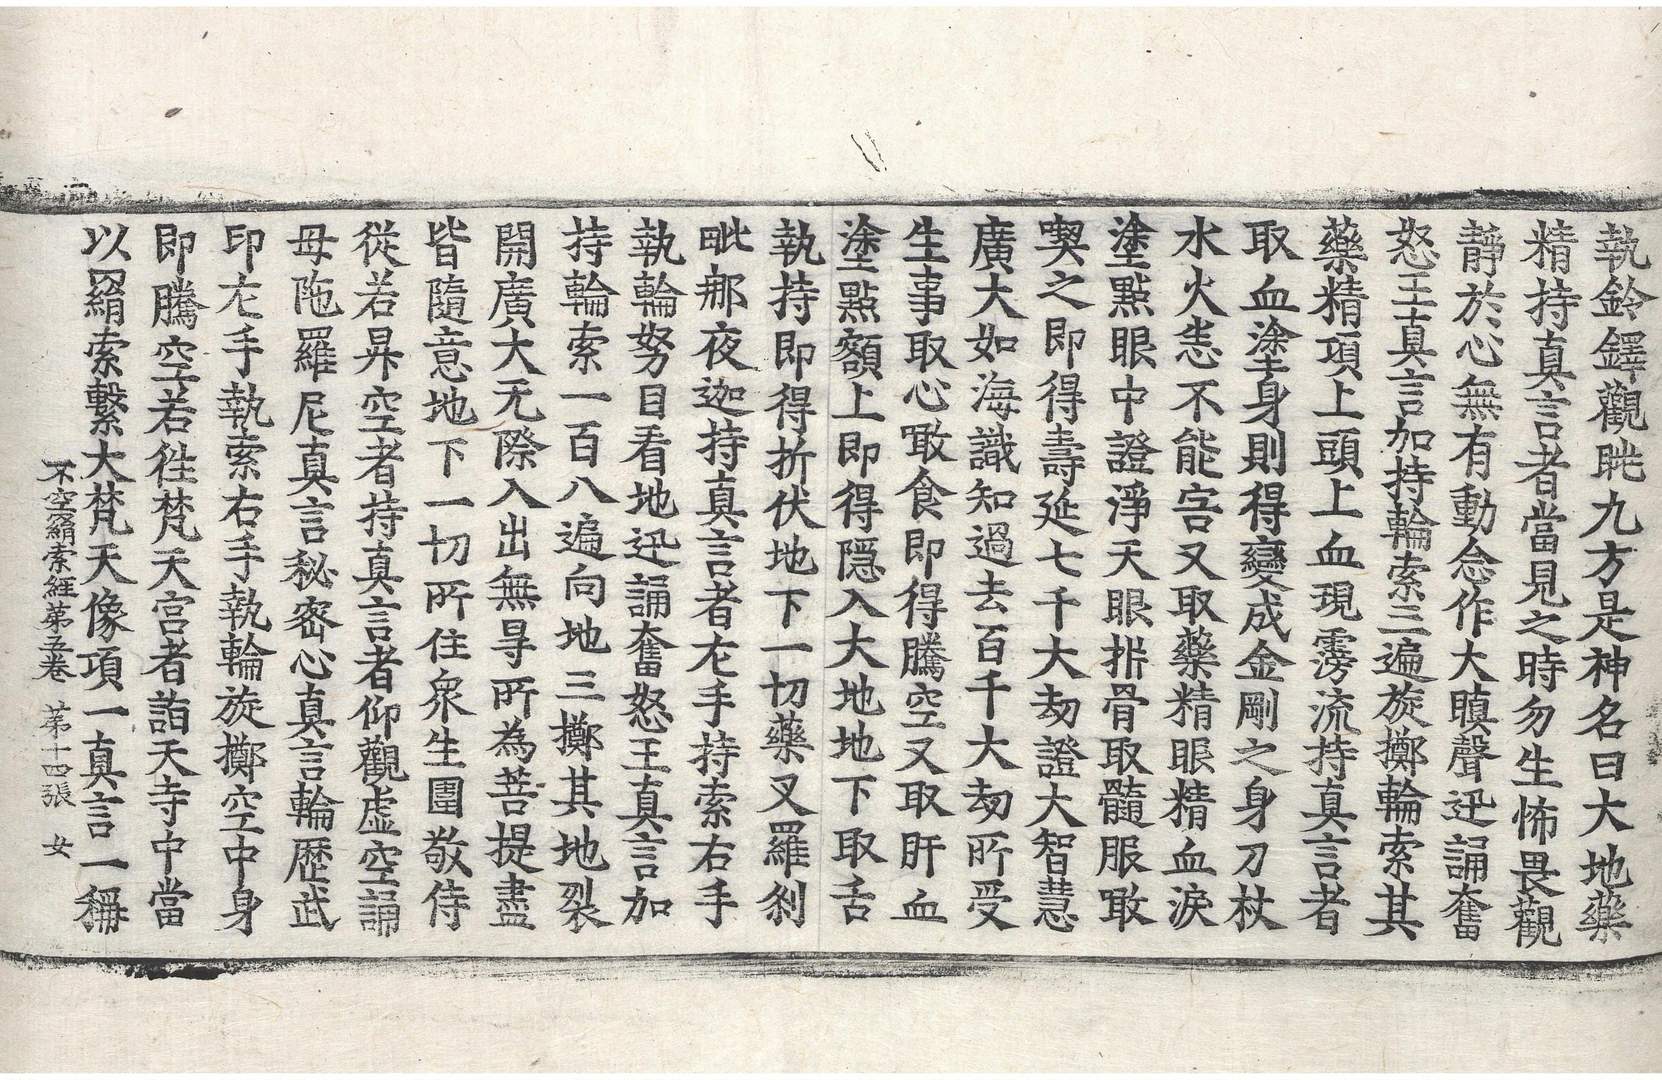 執鈴鐸觀眺九方是神名曰大地藥
精持真言者當見之時勿生怖畏觀
靜於心無有動念作大瞋聲迅誦奮
怒王真言加持輪索三遍旋擲輪索其
藥精項上頭上血現霶流持真言者
取血塗身則得變成金剛之身刀杖
水火恚不能害又取藥精眼精血淚
塗點眼中證淨天眼拆骨取髓服噉
喫之即得壽延七千大劫證大智慧
廣大如海識知過去百千大劫所受
生事取心噉食即得騰空又取肝血
塗點額上即得隱入大地地下取舌
執持即得折伏地下一切藥叉羅刹
毗那夜迦持真言者左手持索右手
執輪努目看地迅誦奮怒王真言加
持輪索一百八遍向地三擲其地裂
開廣大无際入出無㝵所為菩提盡
皆隨意地下一切所住衆生圍敬侍
從若昇空者持真言者仰觀虛空誦
母陁羅尼真言秘密心真言輪歷武
印左手執索右手執輪旋擲空中身
即騰空若徃梵天宮者詣天寺中當
以羂索繫大梵天像項一真言一稱
不空羂索經第五卷 第十四張 女